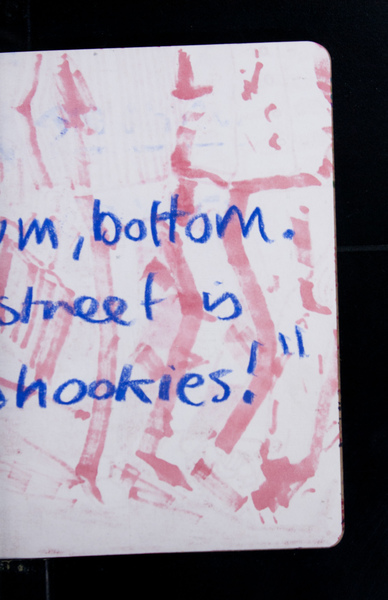 um, bottom.
street is
shookies!"